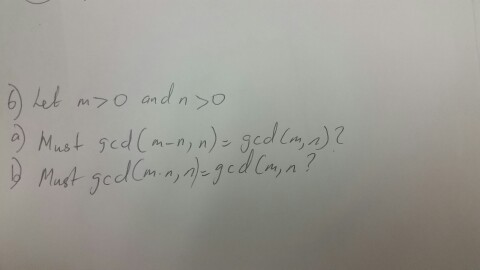 6) Let m>0 and n>0
a) Must gcd(m-n,n)=gcd(m,n)?
b) Must gcd(m·n,n)=gcd(m,n?